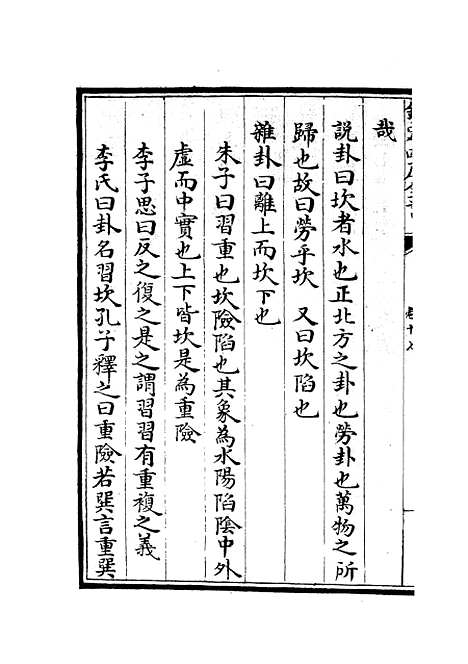 哉
說卦曰坎者水也正北方之卦也勞卦也萬物之所
歸也故曰勞乎坎　又曰坎陷也
雜卦曰離上而坎下也
朱子曰習重也坎險陷也其象為水陽陷陰中外
虛而中實也上下皆坎是為重險
李子思曰反之復之是之謂習習有重複之義
李氏曰卦名習坎孔子釋之曰重險若巽言重巽